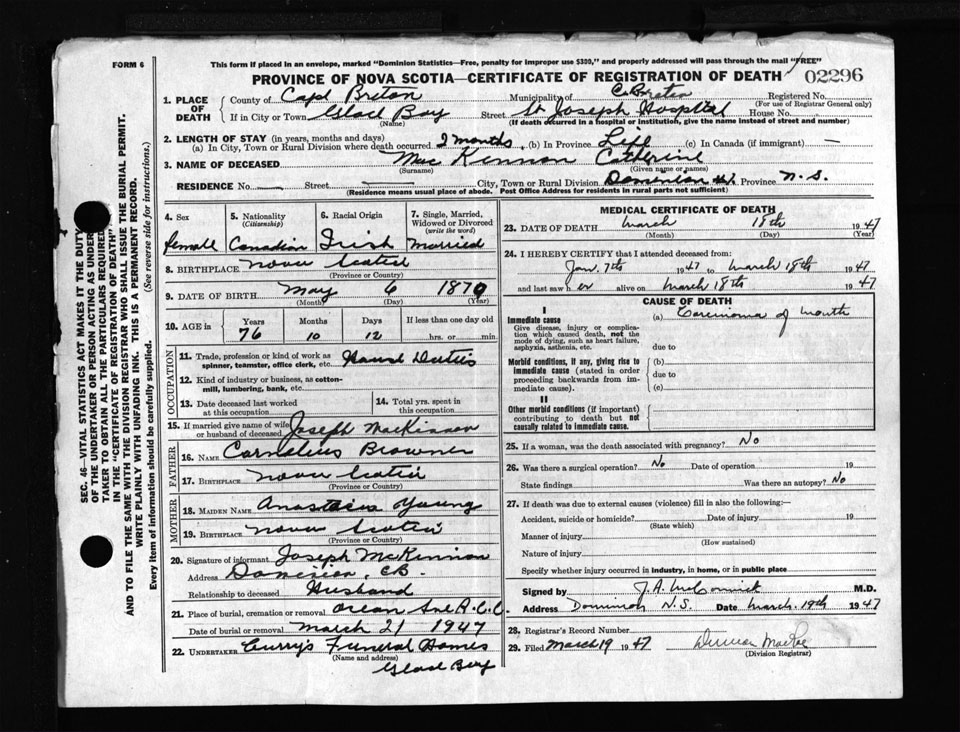 FORM 6
This form if placed in an envelope, marked "Dominion Statistics—Free, penalty for improper use $300," and properly addressed will pass through the mail "FREE"
PROVINCE OF NOVA SCOTIA—CERTIFICATE OF REGISTRATION OF DEATH 02296
1. PLACE OF DEATH
County of Cape Breton Municipality of C. Breton Registered No.
(For use of Registrar General only)
If in City or Town Glace Bay Street St Joseph Hospital House No.
(Name) (If death occurred in a hospital or institution, give the name instead of street and number)
2. LENGTH OF STAY (in years, months and days)
(a) In City, Town or Rural Division where death occurred 2 months (b) In Province Life (c) In Canada (if immigrant) —
3. NAME OF DECEASED MacKinnon Catherine
(Surname) (Given name or names)
RESIDENCE No. — Street — City, Town or Rural Division Dominion Province N.S.
(Residence means usual place of abode. Post Office Address for residents in rural parts not sufficient)
4. Sex female
5. Nationality (Citizenship) Canadian
6. Racial Origin Irish
7. Single, Married, Widowed or Divorced (write the word) Married
8. BIRTHPLACE Nova Scotia
(Province or Country)
9. DATE OF BIRTH May 6 1870
(Month) (Day) (Year)
10. AGE in Years Months Days If less than one day old
76 10 12 hrs. or min.
OCCUPATION
11. Trade, profession or kind of work as spinner, teamster, office clerk, etc. House Duties
12. Kind of industry or business, as cotton-mill, lumbering, bank, etc.
13. Date deceased last worked at this occupation
14. Total yrs. spent in this occupation
15. If married give name of wife or husband of deceased Joseph MacKinnon
FATHER
16. NAME Cornelius Browner
17. BIRTHPLACE Nova Scotia
(Province or Country)
MOTHER
18. MAIDEN NAME Anastasia Young
19. BIRTHPLACE Nova Scotia
(Province or Country)
20. Signature of informant Joseph McKinnon
Address Dominion, CB.
Relationship to deceased Husband
21. Place of burial, cremation or removal Ocean Ave R.C.C.
Date of burial or removal March 21 1947
22. UNDERTAKER Curry's Funeral Homes
(Name and address)
Glace Bay
MEDICAL CERTIFICATE OF DEATH
23. DATE OF DEATH March 18th 1947
(Month) (Day) (Year)
24. I HEREBY CERTIFY that I attended deceased from:
Jan. 7th 1947 to March 18th 1947
and last saw her alive on March 18th 1947
CAUSE OF DEATH
I
Immediate cause
Give disease, injury or complication which caused death, not the mode of dying, such as heart failure, asphyxia, asthenia, etc.
(a) Carcinoma of mouth
due to
Morbid conditions, if any, giving rise to immediate cause (stated in order proceeding backwards from immediate cause).
(b)
due to
(c)
II
Other morbid conditions (if important) contributing to death but not causally related to immediate cause.
25. If a woman, was the death associated with pregnancy? No
26. Was there a surgical operation? No Date of operation 19
State findings Was there an autopsy? No
27. If death was due to external causes (violence) fill in also the following:—
Accident, suicide or homicide? Date of injury 19
(State which)
Manner of injury
(How sustained)
Nature of injury
Specify whether injury occurred in industry, in home, or in public place
Signed by J.A. M.D.
Address Dominion N.S. Date March 19th 1947
28. Registrar's Record Number
29. Filed March 19 1947
(Division Registrar)
SEC. 46—VITAL STATISTICS ACT MAKES IT THE DUTY
OF THE UNDERTAKER OR PERSON ACTING AS UNDER-
TAKER TO OBTAIN ALL THE PARTICULARS REQUIRED
IN THE "CERTIFICATE OF REGISTRATION OF DEATH"
AND TO FILE THE SAME WITH THE DIVISION REGISTRAR WHO SHALL ISSUE THE BURIAL PERMIT.
WRITE PLAINLY WITH UNFADING INK. THIS IS A PERMANENT RECORD.
Every item of information should be carefully supplied. (See reverse side for instructions.)